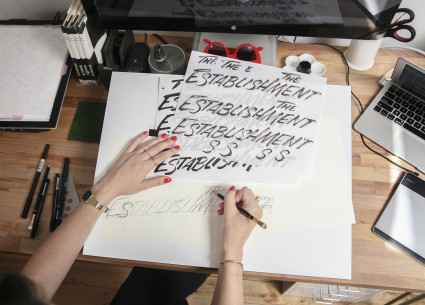 THE THE E THE
ESTABLISHMENT
THE
ESTABLISHMENT
ESTABLISHMENT
S S S S
ESTABLISH
ESTABLISHMENT